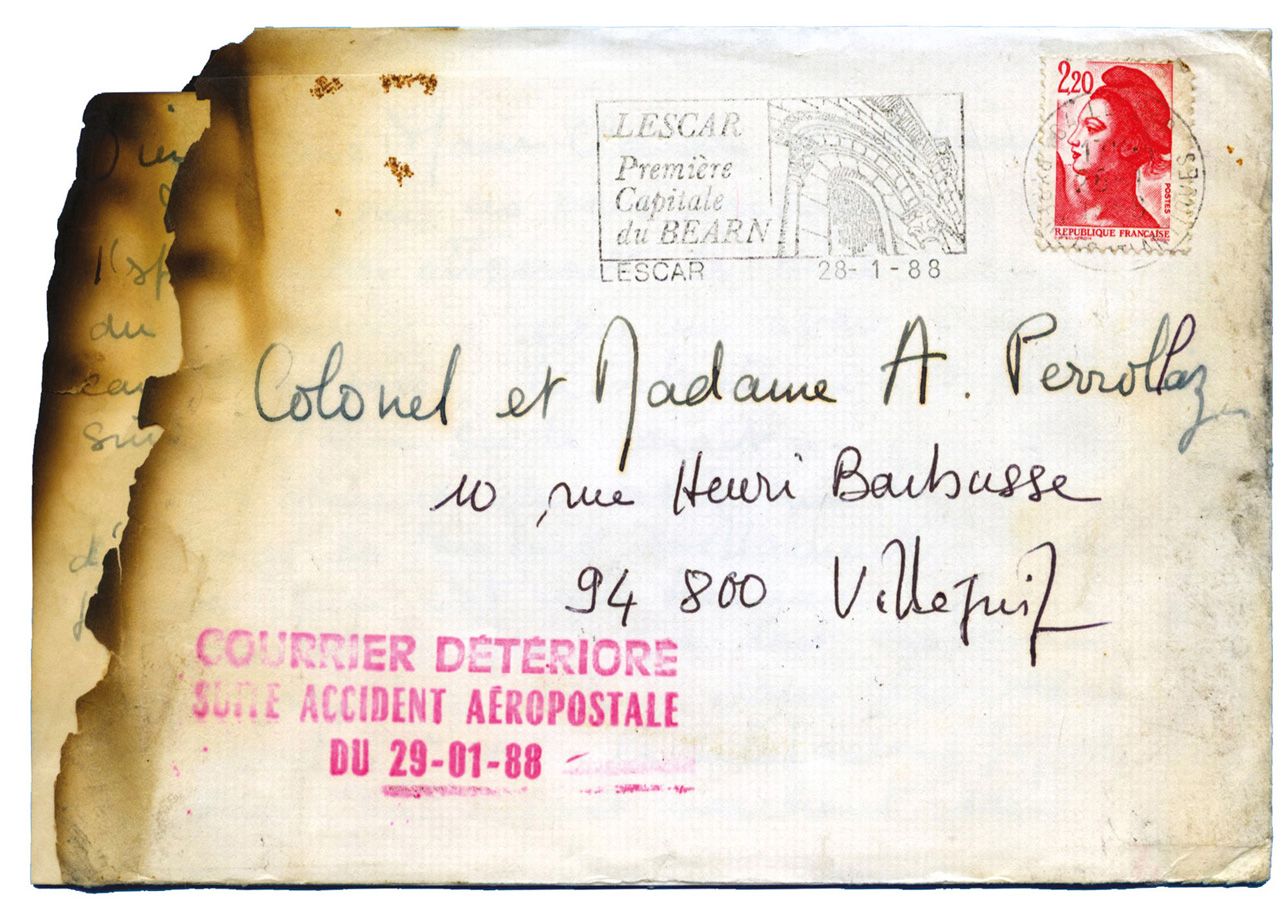 LESCAR
Première
Capitale
du BEARN
LESCAR 28-1-88
2,20
POSTES
REPUBLIQUE FRANÇAISE
Colonel et Madame A. Perrollaz
10, rue Henri Barbusse
94 800 Villejuif
COURRIER DÉTÉRIORÉ
SUITE ACCIDENT AÉROPOSTALE
DU 29-01-88
du